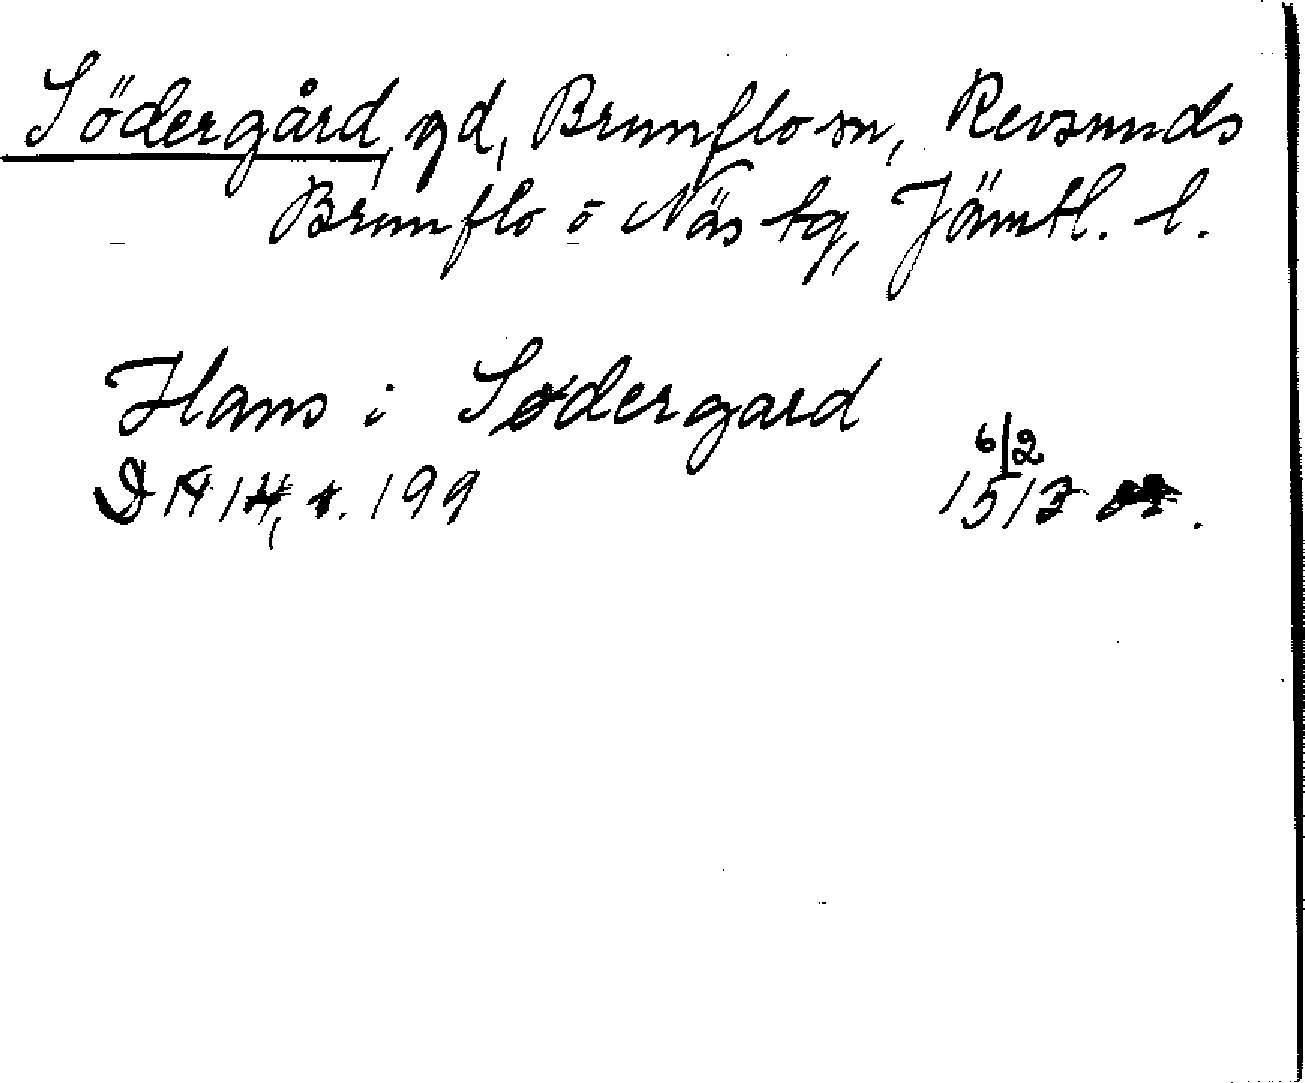 Södergård, gd, Brunflo sn, Revsunds
Brunflo o Näs tg, Jämtl. l.
Hans i Sødergard
6/2
DN 14, s. 199 1513